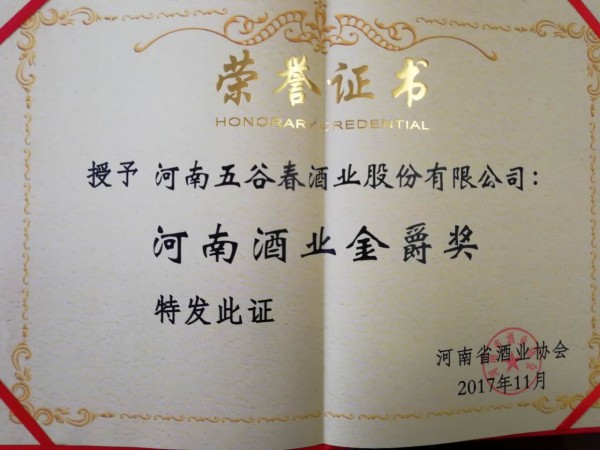 荣誉证书
HONORARY CREDENTIAL
授予 河南五谷春酒业股份有限公司:
河南酒业金爵奖
特发此证
河南省酒业协会
2017年11月